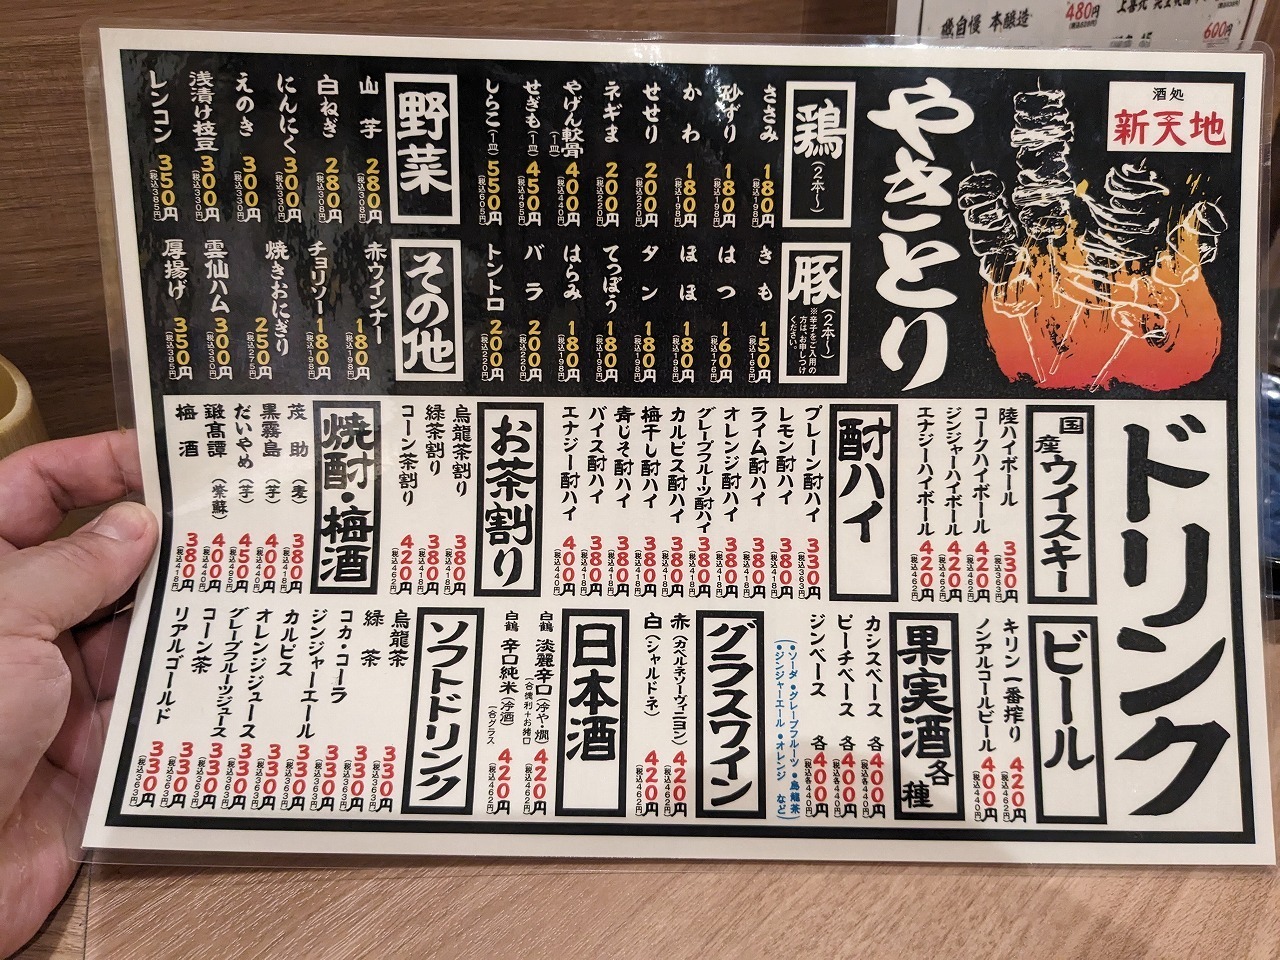 磯自慢 本醸造
480円
600円
酒処
新天地
やきとり
鶏(2本〜)
ささみ 180円(税込198円)
砂ずり 180円(税込198円)
かわ 180円(税込198円)
せせり 200円(税込220円)
ネギま 200円(税込220円)
やげん軟骨(一皿) 400円(税込440円)
せぎも(一皿) 450円(税込495円)
しらこ(一皿) 550円(税込605円)
豚(2本〜)
※辛子をご入用の方は、お申しつけください。
きも 150円(税込165円)
はつ 160円(税込176円)
ほほ 180円(税込198円)
タン 180円(税込198円)
てっぽう 180円(税込198円)
はらみ 180円(税込198円)
バラ 200円(税込220円)
トントロ 200円(税込220円)
野菜
山芋 280円(税込308円)
白ねぎ 280円(税込308円)
にんにく 300円(税込330円)
えのき 300円(税込330円)
浅漬け枝豆 300円(税込330円)
レンコン 350円(税込385円)
その他
赤ウインナー 180円(税込198円)
チョリソー 180円(税込198円)
焼きおにぎり 250円(税込275円)
雲仙ハム 300円(税込330円)
厚揚げ 350円(税込385円)
ドリンク
国産ウイスキー
陸ハイボール 330円(税込363円)
コークハイボール 420円(税込462円)
ジンジャーハイボール 420円(税込462円)
エナジーハイボール 420円(税込462円)
酎ハイ
プレーン酎ハイ 330円(税込363円)
レモン酎ハイ 380円(税込418円)
ライム酎ハイ 380円(税込418円)
オレンジ酎ハイ 380円(税込418円)
グレープフルーツ酎ハイ 380円(税込418円)
カルピス酎ハイ 380円(税込418円)
梅干し酎ハイ 380円(税込418円)
青じそ酎ハイ 380円(税込418円)
バイス酎ハイ 380円(税込418円)
エナジー酎ハイ 400円(税込440円)
お茶割り
烏龍茶割り 380円(税込418円)
緑茶割り 380円(税込418円)
コーン茶割り 420円(税込462円)
焼酎・梅酒
茂助(麦) 380円(税込418円)
黒霧島(芋) 400円(税込440円)
だいやめ(芋) 450円(税込495円)
鍛高譚(紫蘇) 400円(税込440円)
梅酒 380円(税込418円)
ビール
キリン一番搾り 420円(税込462円)
ノンアルコールビール 400円(税込440円)
果実酒各種
カシスベース 各400円(税込各440円)
ピーチベース 各400円(税込各440円)
ジンベース 各400円(税込各440円)
(●ソーダ ●グレープフルーツ ●烏龍茶
●ジンジャーエール ●オレンジ など)
グラスワイン
赤(カベルネソーヴィニヨン) 420円(税込462円)
白(シャルドネ) 420円(税込462円)
日本酒
白鶴 淡麗辛口(冷や・燗)(一合徳利+お猪口) 420円(税込462円)
白鶴 辛口純米(冷酒)(一合グラス) 420円(税込462円)
ソフトドリンク
烏龍茶 330円(税込363円)
緑茶 330円(税込363円)
コカ・コーラ 330円(税込363円)
ジンジャーエール 330円(税込363円)
カルピス 330円(税込363円)
オレンジジュース 330円(税込363円)
グレープフルーツジュース 330円(税込363円)
コーン茶 330円(税込363円)
リアルゴールド 330円(税込363円)